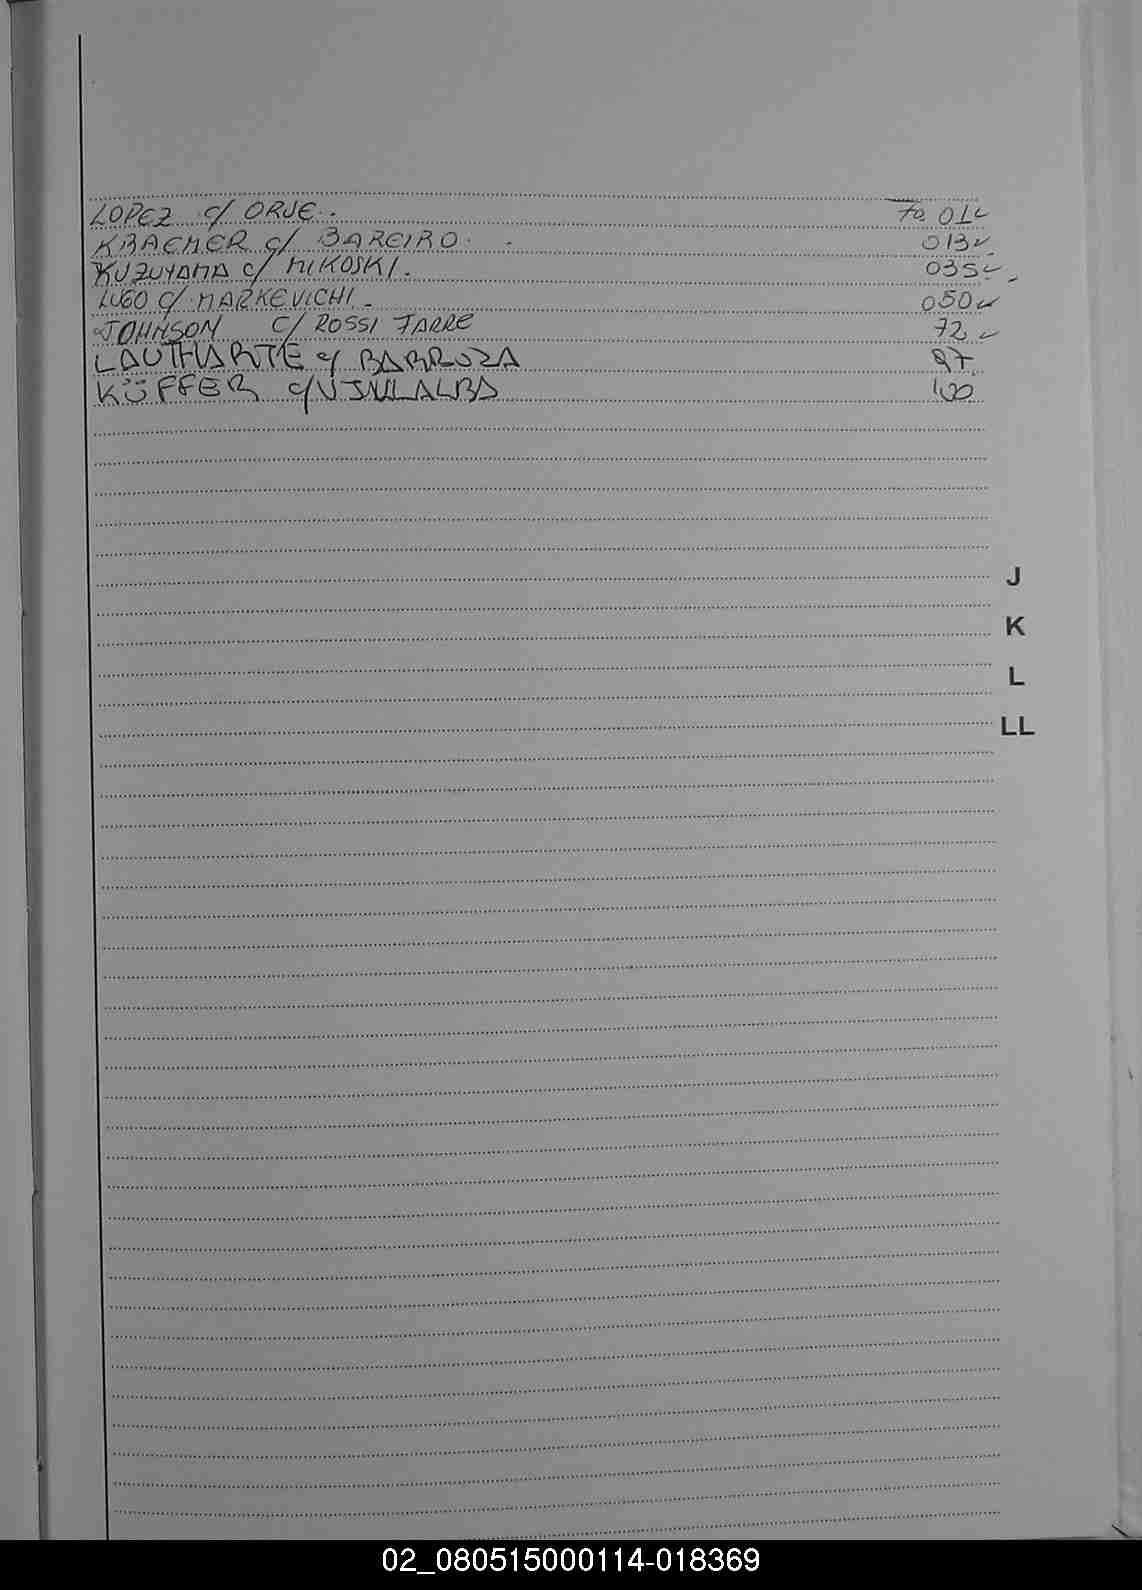 LOPEZ c/ ORUE. Fo 01
KRACHER c/ BAREIRO. 013
KUZUYAMA c/ MIKOSKI. 035
LUGO c/ MARKEVICHI. 050
JOHNSON c/ ROSSI FARRE 72
LAUTHARTE c/ BARBOZA 97
KÜFFER c/ VILLALBA 100
J
K
L
LL
02_080515000114-018369